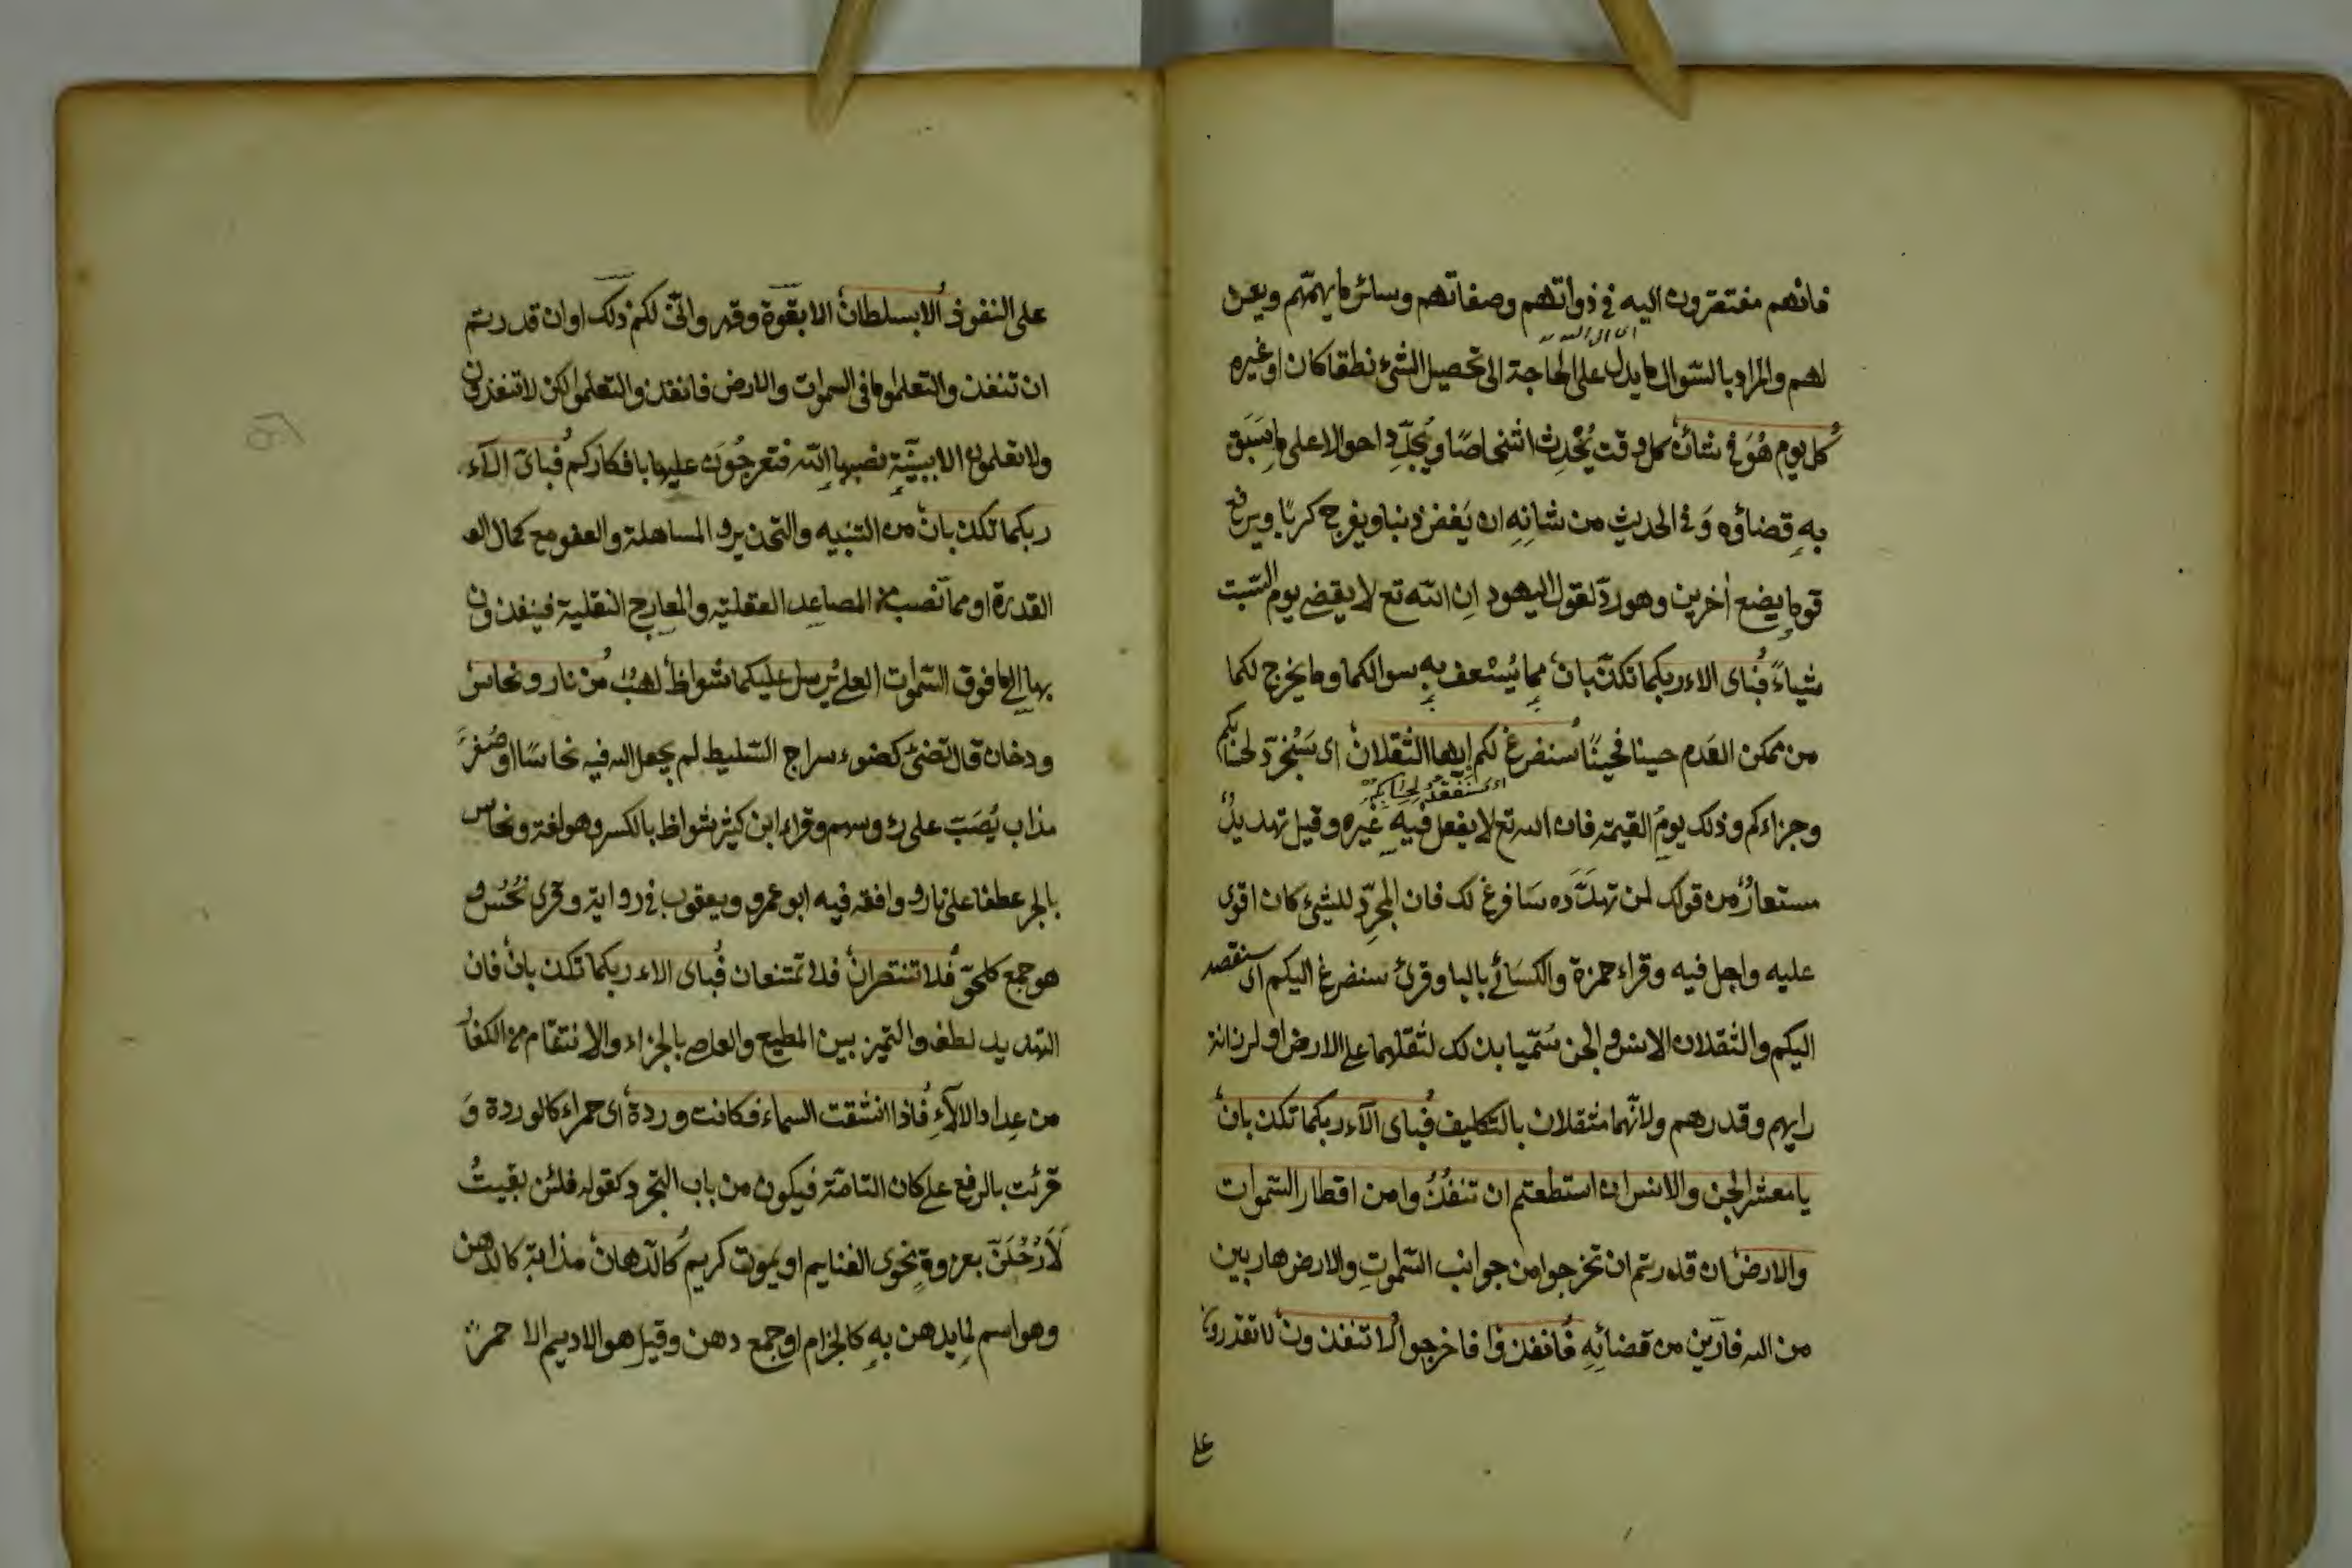 فانهم مفتقرون اليه فى ذواتهم وصفاتهم وسائر ما يهمّهم ويعن
لهم والمراد بالسّوال ما يدل على الحاجة الى تحصيل الشئ نطقا كان او غيره
كل يوم هُوَ فى شان كل وقت يُحْدِث اشخاصًا ويُجدِّد احوالا على ما سَبَق
بهِ قضاؤه وَفى الحديث من شانِهِ ان يَغفر ذنبا ويفرج كربًا ويرفع
قوما ويضع اٰخرين وهو ردّ لقول اليهود اِن الله تع لا يقضى يوم السّبت
شياءً فباى الاء ربكما تكذّبان مما يُسْعف بهِ سوالكما وما يخرج لكما
من ممكن العَدم حينا فحينًا سنفرغ لكم ايها الثقلان اى سَنتجرّد لحسابكم
وجزاءكم وذلك يومُ القيمة فان الله تع لا يفعل فيهِ غيره وقيل تهديدٌ
مستعارٌ من قولك لمن تهدّده سَافرغ لك فان المجرِّد للشئ كان اقوى
عليه واجل فيه وقراء حمزة والكسَائے باليا وقرئ سنفرغ اليكم اى سنقصد
اليكم والثقلان الانس والجن سُمّيا بذلك لثقلهما على الارض او لرزانة
رايهم وقدرهم ولانّهما مثقلان بالتكليف فباى الآء ربكما تكذبان
يا معشر الجن والانس ان استطعتم ان تنفُذُوا من اقطار السّموات
والارض ان قدرتم ان تخرجوا من جوانب السّمٰوتِ والارض هاربين
من الله فارّين من قضائِهِ فانفذوا فاخرجوا لا تنفذون لا تقدرون
على
على النفوذ الا بسلطان الا بقوة وقهر وانّى لكم ذلك او ان قدرتم
ان تنفذوا لتعلموا ما فى السموات والارض فانفذوا لتعلموا لكن لا تنفذون
ولا تعلمون الا ببيّنةٍ نصبها الله فتعرجُونَ عليها بافكاركم فباىّ الآء
ربكما تكذبان من التنبيه والتحذير والمساهلة والعفو مع كمال
القدرة او مما نصب من المصاعِد العقليّة والمعارج النقلية فينفذون
بها الى ما فوق السّموات العلى يُرسل عليكما شواظ لهبٌ من نار ونحاس
ودخان قال تضئ كضوء سراج السّليط لم يجعل الله فيه نحاسًا او صُفرٌ
مذاب يُصَبّ على رؤسهم وقراء ابن كثير شواظ بالكسر وهو لغة ونحاس
بالجر عطفا على نار ووافقه فيه ابو عمرو ويعقوب فى رواية وقرى نُحُسٌ و
هو جمع كلحف فلا تنتصران فلا تمتنعان فباى الاء ربكما تكذبان فان
التهديد لطف والتميز بين المطيع والعاصى بالجزاء والانتقام من الكفار
من عِداد الالآءِ فاذا انشقت السماء فكانت وردة اى حمراء كالوردة وَ
قرئت بالرفع على كان التامّة فيكون من باب التجرد كقوله فلئن بقيتُ
لَاَرْحُلَنّ بغزوةٍ نحوى الغنايم او يموت كريم كالدّهان مذابة كالدهن
وهو اسم لما يدهن بهِ كالحزام او جمع دهن وقيل هو الاديم الا حمر